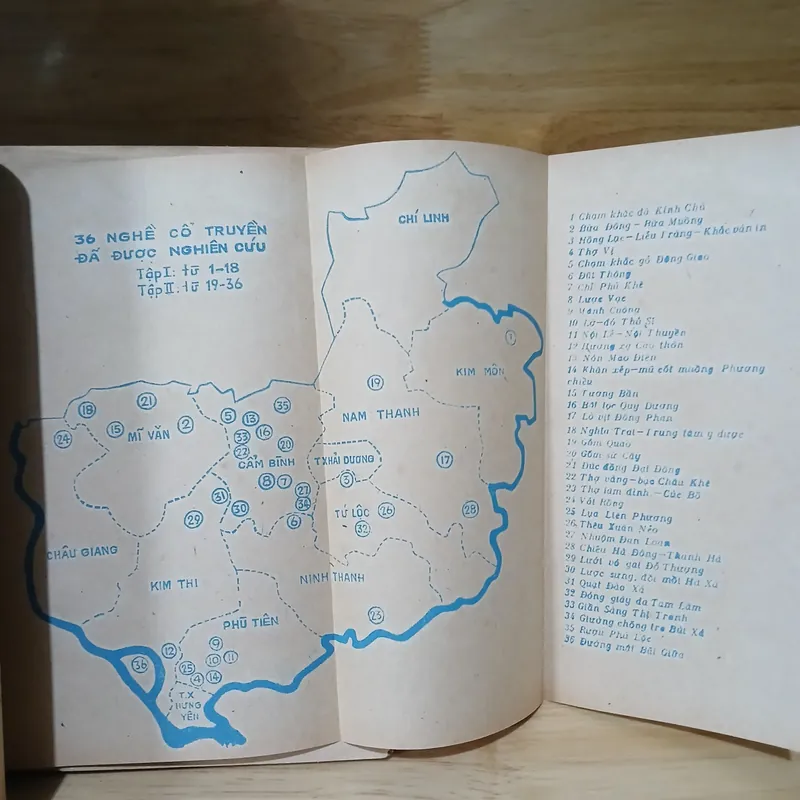 36 NGHỀ CỔ TRUYỀN
ĐÃ ĐƯỢC NGHIÊN CỨU
Tập I: từ 1-18
Tập II: từ 19-36
CHÍ LINH
1
KIM MÔN
19
NAM THANH
18
21
15
2
24
MĨ VĂN
5
13
35
33
16
22
20
CẨM BÌNH
8
7
27
34
6
T.X HẢI DƯƠNG
3
17
31
30
29
TỨ LỘC
26
32
28
CHÂU GIANG
KIM THI
NINH THANH
PHÙ TIÊN
23
36
12
9
10
11
25
4
14
T.X
HƯNG
YÊN
1 Chạm khắc đá Kính Chủ
2 Đũa Đông - Bừa Muồng
3 Hồng Lục - Liễu Tràng - Khắc ván in
4 Thợ Vị
5 Chạm khắc gỗ Đông Giao
6 Đột Thông
7 Chỉ Phú Khê
8 Lược Vạc
10 Sĩ
11 Nội Lễ - Nội Thuyền
12 Cao thôn
13 Nón Mao Điền
14 Khăn xếp - mũ cốt muồng Phương
chiểu
15 Tương Bần
16 Bất lọc Quý Dương
17 Lò vịt Đồng Phan
18 Nghĩa Trai - Trung tâm y dược
19 Gốm Quao
20 Gốm sứ Cậy
21 Đúc đồng Đại Đồng
22 Thợ vàng - bạc Châu Khê
23 Thợ làm đình - Cúc Bồ
24 Vải Rồng
25 Lụa Liên Phương
26 Thêu Xuân Nẻo
27 Nhuộm Đan Loan
28 Chiếu Hà Đông - Thanh Hà
29 Lưới võ gai Đỗ Thượng
30 Lược sừng, đồi mồi Hà Xá
31 Quạt Đào Xá
32 Đóng giầy da Tam Lâm
33 Giần Sàng Thị Tranh
34 Giường chõng tre Bùi Xá
35 Rượu Phú Lộc
36 Đường mật Bãi Giữa